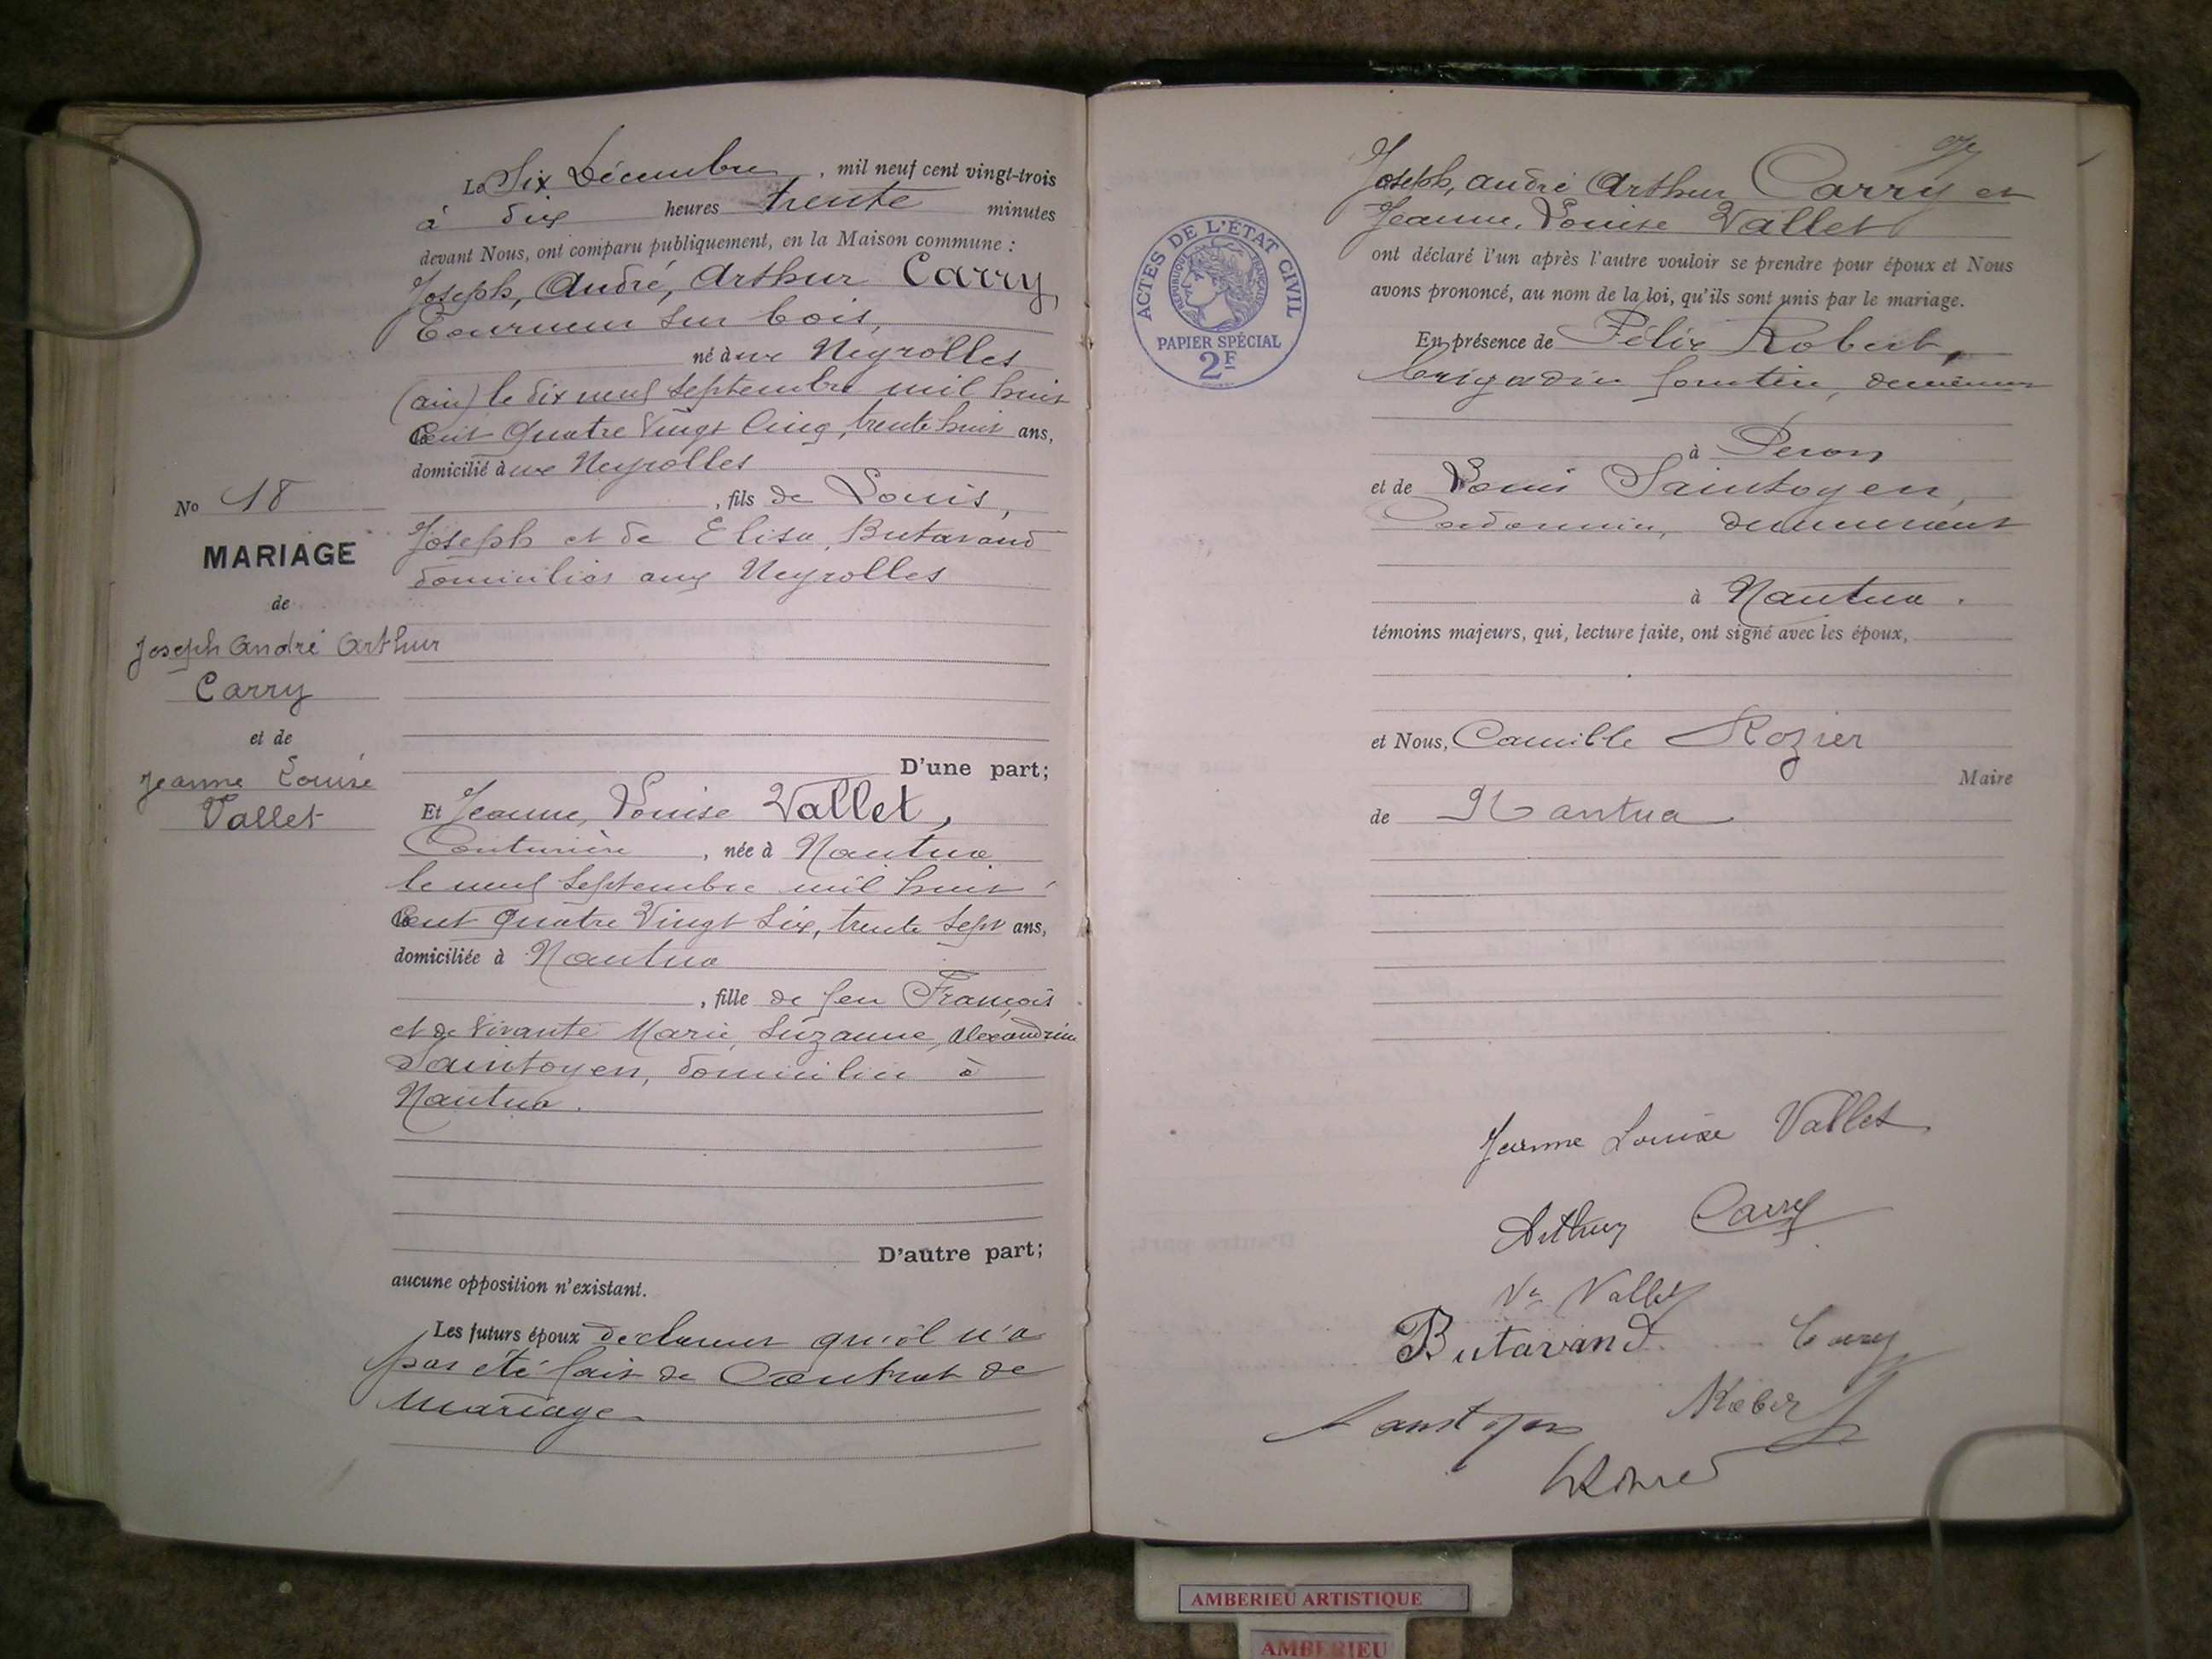 Le Six Décembre, mil neuf cent vingt-trois
à dix heures trente minutes
devant Nous, ont comparu publiquement, en la Maison commune :
Joseph, André, Arthur Carry,
Tourneur sur bois,
né aux Neyrolles
(ain) le dix neuf Septembre mil huit
Cent Quatre Vingt Cinq, trente huit ans,
domicilié aux Neyrolles
, fils de Louis,
Joseph et de Elisa, Butavand
domiciliés aux Neyrolles
No 18
MARIAGE
de
Joseph André Arthur
Carry
et de
Jeanne Louise
Vallet
D'une part;
Et Jeanne, Louise Vallet,
Couturière, née à Nantua
le neuf Septembre mil huit
Cent Quatre Vingt Six, trente sept ans,
domiciliée à Nantua
, fille de feu François
et de vivante Marie, Suzanne, Alexandrine
Saintoyen, domiciliée à
Nantua.
D'autre part;
aucune opposition n'existant.
Les futurs époux declarent qu'il n'a
pas été fait de Contrat de
Mariage
Joseph, André Arthur Carry et
Jeanne, Louise Vallet
ont déclaré l'un après l'autre vouloir se prendre pour époux et Nous
avons prononcé, au nom de la loi, qu'ils sont unis par le mariage.
En présence de Félix Robert,
brigadier forestier, demeurant
à Peron
et de Louis Saintoyen,
Cordonnier, demeurant
à Nantua.
témoins majeurs, qui, lecture faite, ont signé avec les époux,
et Nous, Camille Rozier
Maire
de Nantua
ACTES DE L'ÉTAT CIVIL
RÉPUBLIQUE FRANÇAISE
PAPIER SPÉCIAL
2F
Jeanne Louise Vallet
Arthur Carry
Ve Vallet
Butavand Carry
Saintoyen Robert
AMBERIEU ARTISTIQUE
AMBERIEU